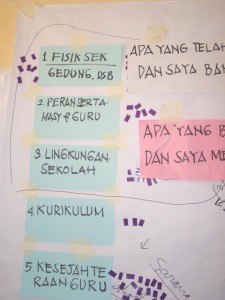 1. FISIK SEK
GEDUNG. DSB
2. PERAN SERTA
MASY & GURU
3. LINGKUNGAN
SEKOLAH
4. KURIKULUM
5. KESEJAHTE
RAAN GURU
APA YANG TELAH
DAN SAYA BA
APA YANG B
DAN SAYA ME
Saran